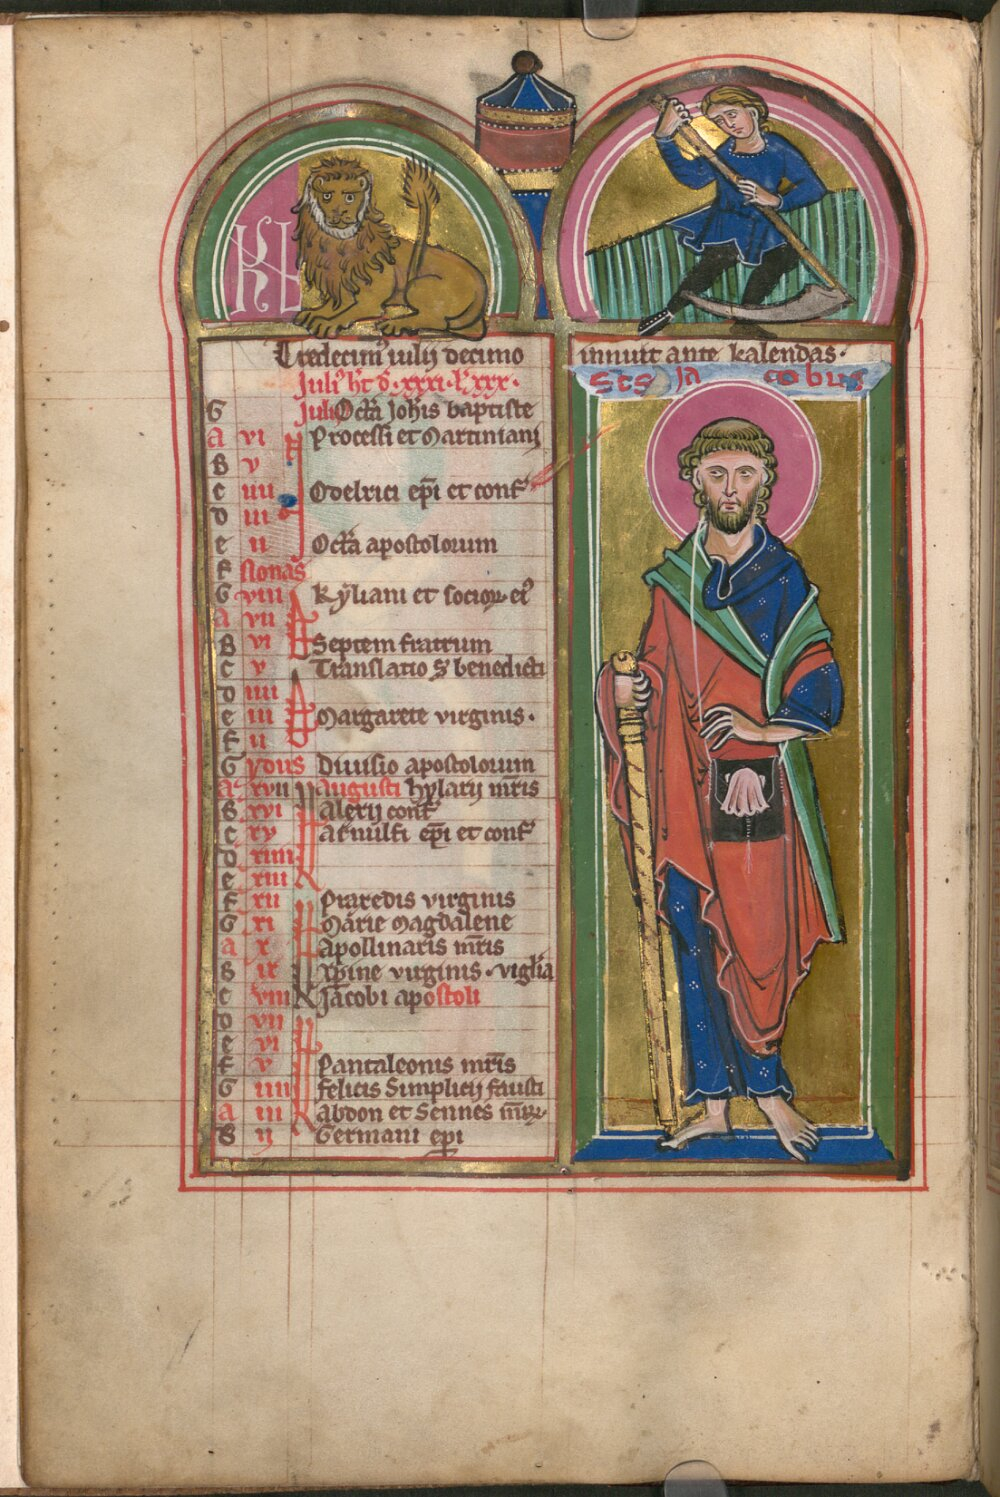 KL
Tredecim᾽ iulij decimo innuit ante kalendas·
Juli᾽ ht d·xxxi·l᾽xxx·
scs ja cobus
G Juli Octa Joh̄is baptiste
A vi Processi et Martiniani
B v
c iiii Odelrici ep̄i et conf᾽
d iii
e ii Octa apostolorum
F Nonas
G viii Kyliani et socioꝝ ei᾽
A vii
B vi Septem fratrum
c v Translatio S benedicti
d iiii
e iii Margarete virginis·
F ii
G ydus Diuisio apostolorum
A xvii augusti hylarij mr̄is
B xvi Alexij conf᾽
c xv Arnulfi ep̄i et conf᾽
d xiiii
e xiii
F xii Praxedis virginis
G xi Marie Magdalene
a x Apollinaris mr̄is
B ix xp̄ine virginis·vigl̄ia
c viii Jacobi apostoli
d vii
e vi
F v Pantaleonis mr̄is
G iiii felicis Simplicij fausti
a iii Abdon et Sennes m̄rꝝ
B ij Germani ep̄i